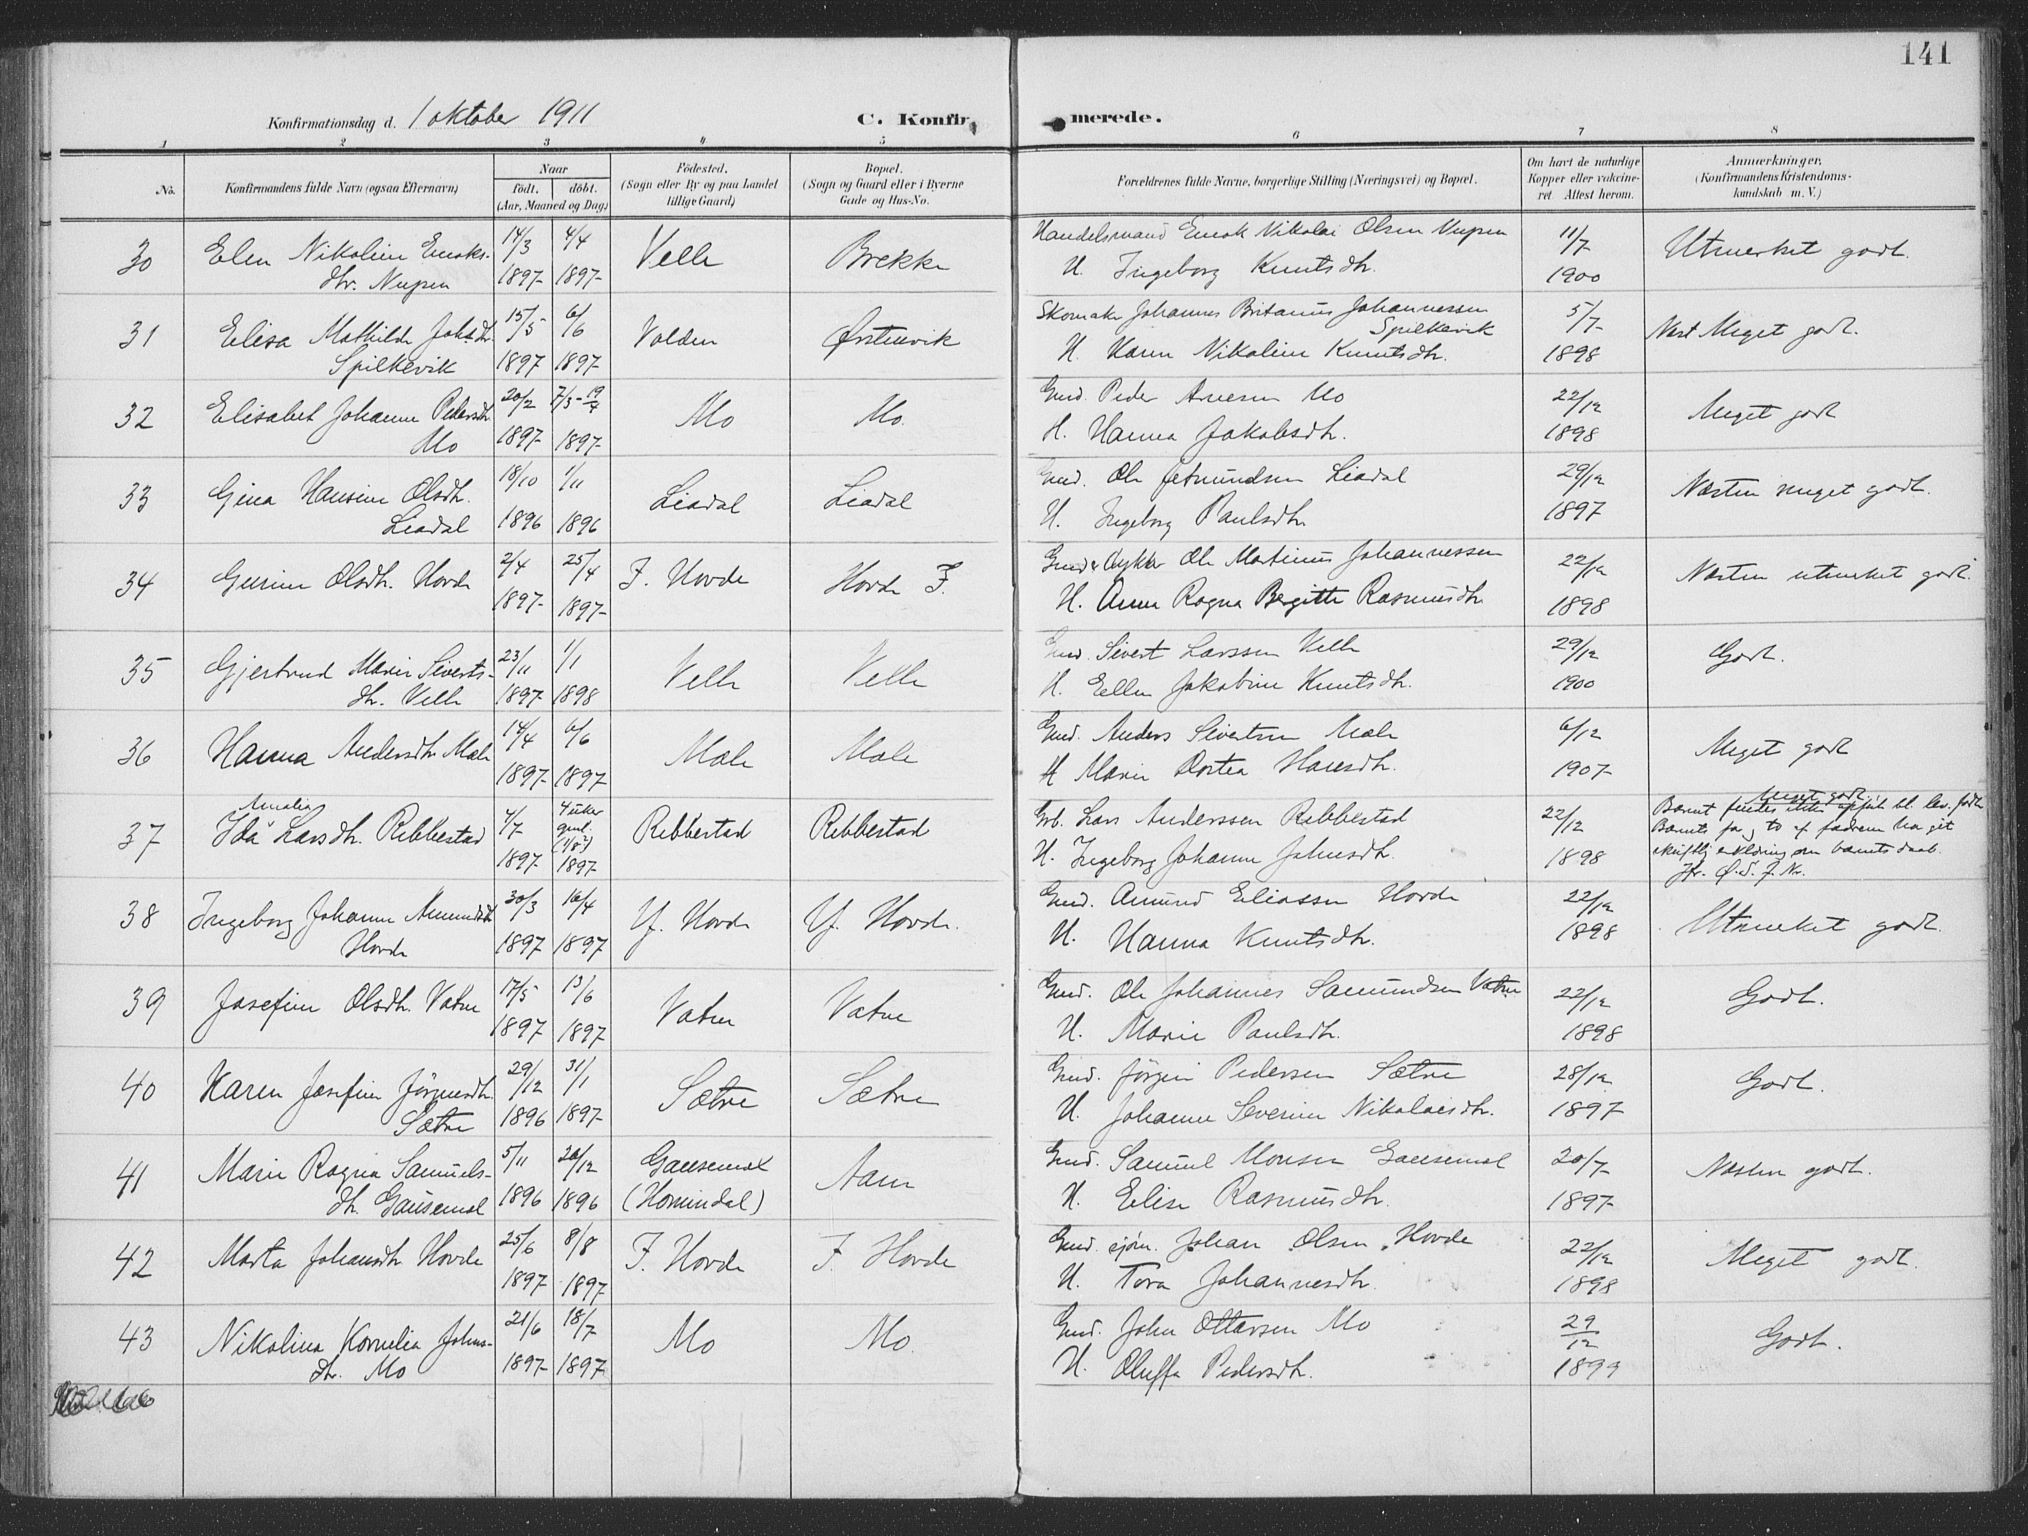 141
Konfirmationsdag d. 1 oktober 1911 C. Konfir merede.
1 2 3 4 5 6 7 8
No. Konfirmandens fulde Navn (ogsaa Efternavn) Naar født. døbt. (Aar, Maaned og Dag) Fødested. (Sogn eller By og paa Landet tillige Gaard) Bopæl. (Sogn og Gaard eller i Byerne Gade og Hus-No. Forældrenes fulde Navne, borgerlige Stilling (Næringsvei) og Bopæl. Om havt de naturlige Kopper eller vakcineret. Attest herom. Anmærkninger. (Konfirmandens Kristendomskundskab m. V.)
30 Elen Nikoline Enoks- 14/3 4/4 Velle Brekke Handelsmand Enok Nikolai Olsen Nupen 11/7 Utmerket godt.
dtr. Nupen 1897 1897 H. Ingeborg Knutsdtr. 1900
31 Elisa Mathilde Johsdtr. 15/5 6/6 Volden Ørstenvik Skomaker Johannes Britanus Johannessen 5/7 Næst Meget godt.
Spilkevik
Spilkevik 1897 1897 H. Karen Nikoline Knutsdtr. 1898
32 Elisabet Johanne Pedersdtr. 20/2 7/3-19/4 Mo Mo. Gmd. Peder Arnesen Mo 22/12 Meget godt
Mo 1897 1897 H. Hanna Jakobsdtr. 1898
33 Gina Hansine Olsdtr. 18/10 1/11 Liadal Liadal Gmd. Ole Jetmundsen Liadal 29/12 Næsten meget godt.
Liadal 1896 1896 H. Ingeborg Paulsdtr 1897
34 Gurine Olsdtr. Hovde 2/4 25/4 F. Hovde Hovde F. Ole Martinus Johannessen 22/12 Næsten utmerket godt.
1897 1897 H. Anne Ragna Bergitte Rasmusdtr 1898
35 Gjertrud Marie Siverts- 23/11 1/1 Velle Velle Gmd. Sivert Larssen Velle 29/12 Godt.
dtr. Velle 1897 1898 H. Ellen Jakobine Knutsdtr. 1900
36 Hanna Andersdtr Mæle 14/4 6/6 Mæle Mæle Gmd. Anders Sivertsen Mæle 6/12 Meget godt
1897 1897 H Marie Dortea Hansdtr. 1907
Amalia Meget godt.
37 Ida Larsdtr. Ribbestad 4/7 4 uker gml. (1/8?) Ribbestad Ribbestad Lars Anderssen Ribbestad 22/12 Barnet findes ikke opført bl. lev. fødte
Barnets far, to af fadrene ha git
1897 1897 H. Ingeborg Johanne Johnsdtr. 1898 skriftlig erklæring om barnets daab.
38 Ingeborg Johanne Amundsdtr 30/3 16/4 Y. Hovde Y. Hovde. Gmd. Amund Eliassen Hovde 22/12 Utmerket godt.
Hovde 1897 1897 H. Hanna Knutsdtr. 1898
39 Josefine Olsdtr. Vatne 17/5 13/6 Vatne Vatne Gmd. Ole Johannes Samundsen Vatne 22/12 Godt.
1897 1897 H. Marie Paulsdtr. 1898
40 Karen Josefine Jørgensdtr. 29/12 31/1 Sætre Sætre Gmd. Jørgen Pedersen Sætre 28/12 Godt.
Sætre 1896 1897 H. Johanne Severine Nikolaisdtr. 1897
41 Marie Ragna Samuels- 5/11 20/12 Gausemel Aam Gmd. Samuel Monsen Gausemel 20/7 Næsten godt.
dtr. Gausemel 1896 1896 (Hornindal) H. Elise Rasmusdtr. 1897
42 Marta Johansdtr Hovde 25/6 8/8 F. Hovde F. Hovde Gmd. sjøm. Johan Olsen Hovde 22/12 Meget godt.
1897 1897 H. Tora Johannesdtr. 1898
43 Nikolina Kornelia Johns- 21/6 18/7 Mo Mo. Gmd. John Ottarsen Mo 29/12 Godt.
dtr. Mo 1897 1897 H. Oluffa Pedersdtr. 1899